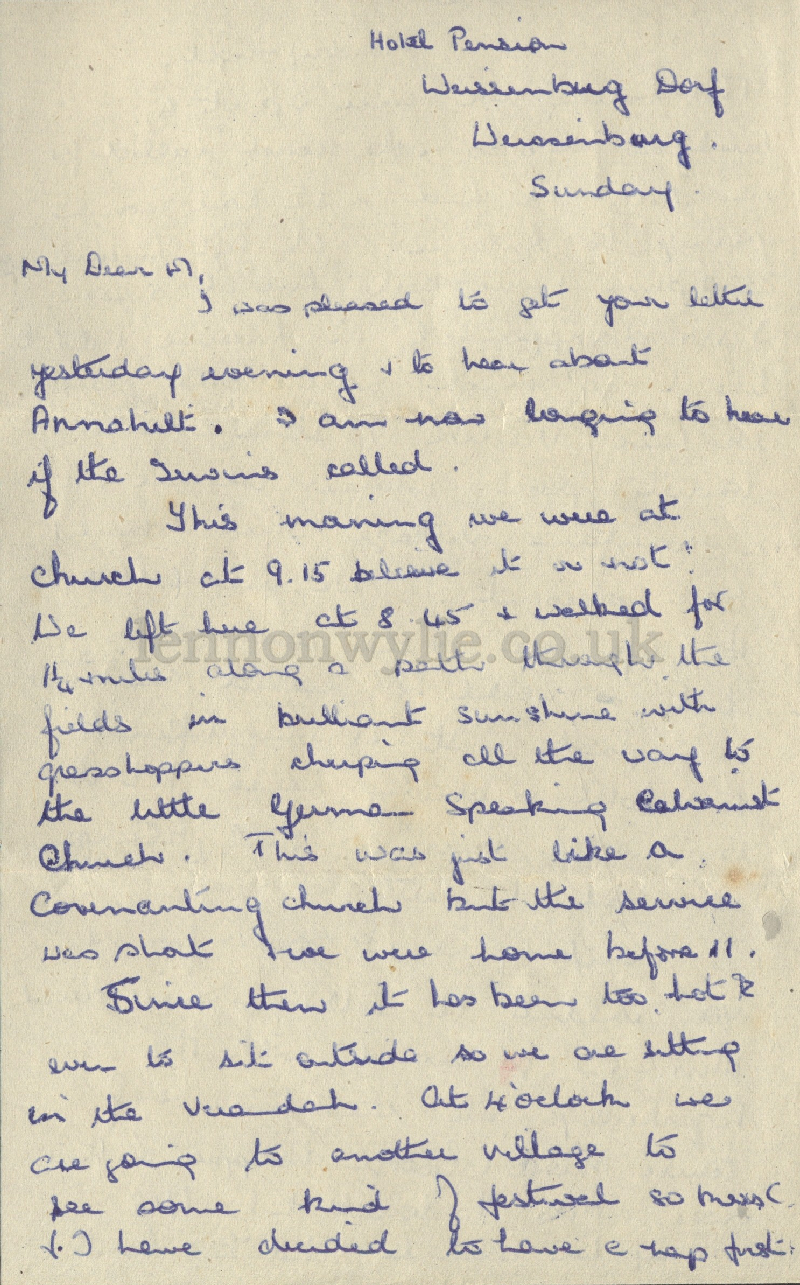 Hotel Pension
Weissenburg Dorf
Weissenburg.
Sunday.
My Dear M,
I was pleased to get your letter
yesterday evening & to hear about
Annahilt. I am now longing to hear
if the Irwins called.
This morning we were at
church at 9.15 believe it or not!
We left here at 8.45 & walked for
lennonwylie.co.uk
1¼ miles along a path through the
fields in brilliant sunshine with
grasshoppers cheeping all the way to
the little German Speaking Calvinist
Church. This was just like a
Covenanting church but the service
was short & we were home before 11.
Since then it has been too hot
even to sit outside so we are sitting
in the verandah. At 4 o'clock we
are going to another village to
see some kind of festival so
& I have decided to have a nap first.